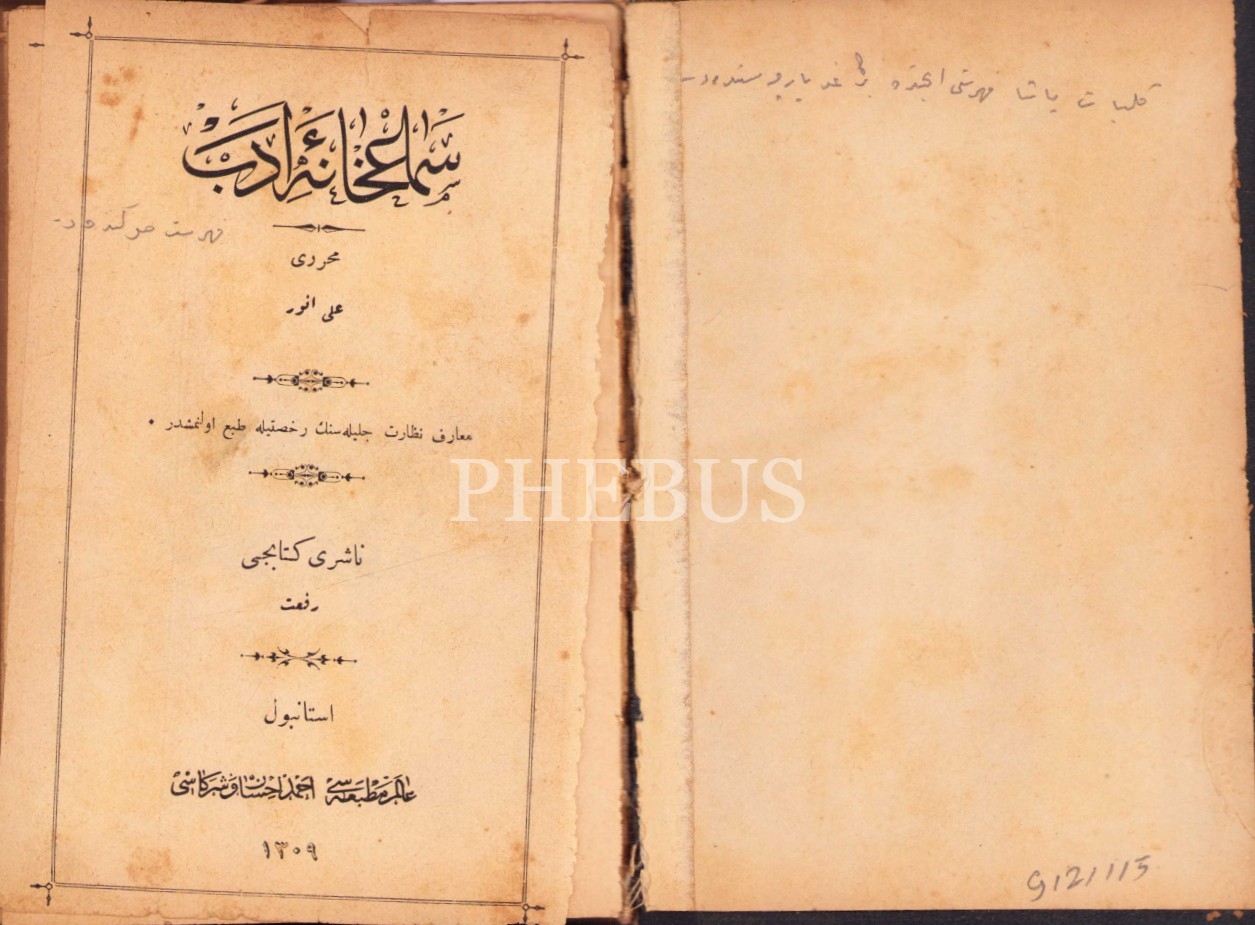 سماعخانهٔ ادب
محرری
علی انور
معارف نظارت جلیله‌سنك رخصتیله طبع اولنمشدر ٠
ناشری كتابجی
رفعت
استانبول
عالم مطبعه‌سی احمد احسان و شركاسی
١٣٠٩
فهرست
PHEBUS
پاشا فهرستی
9121115